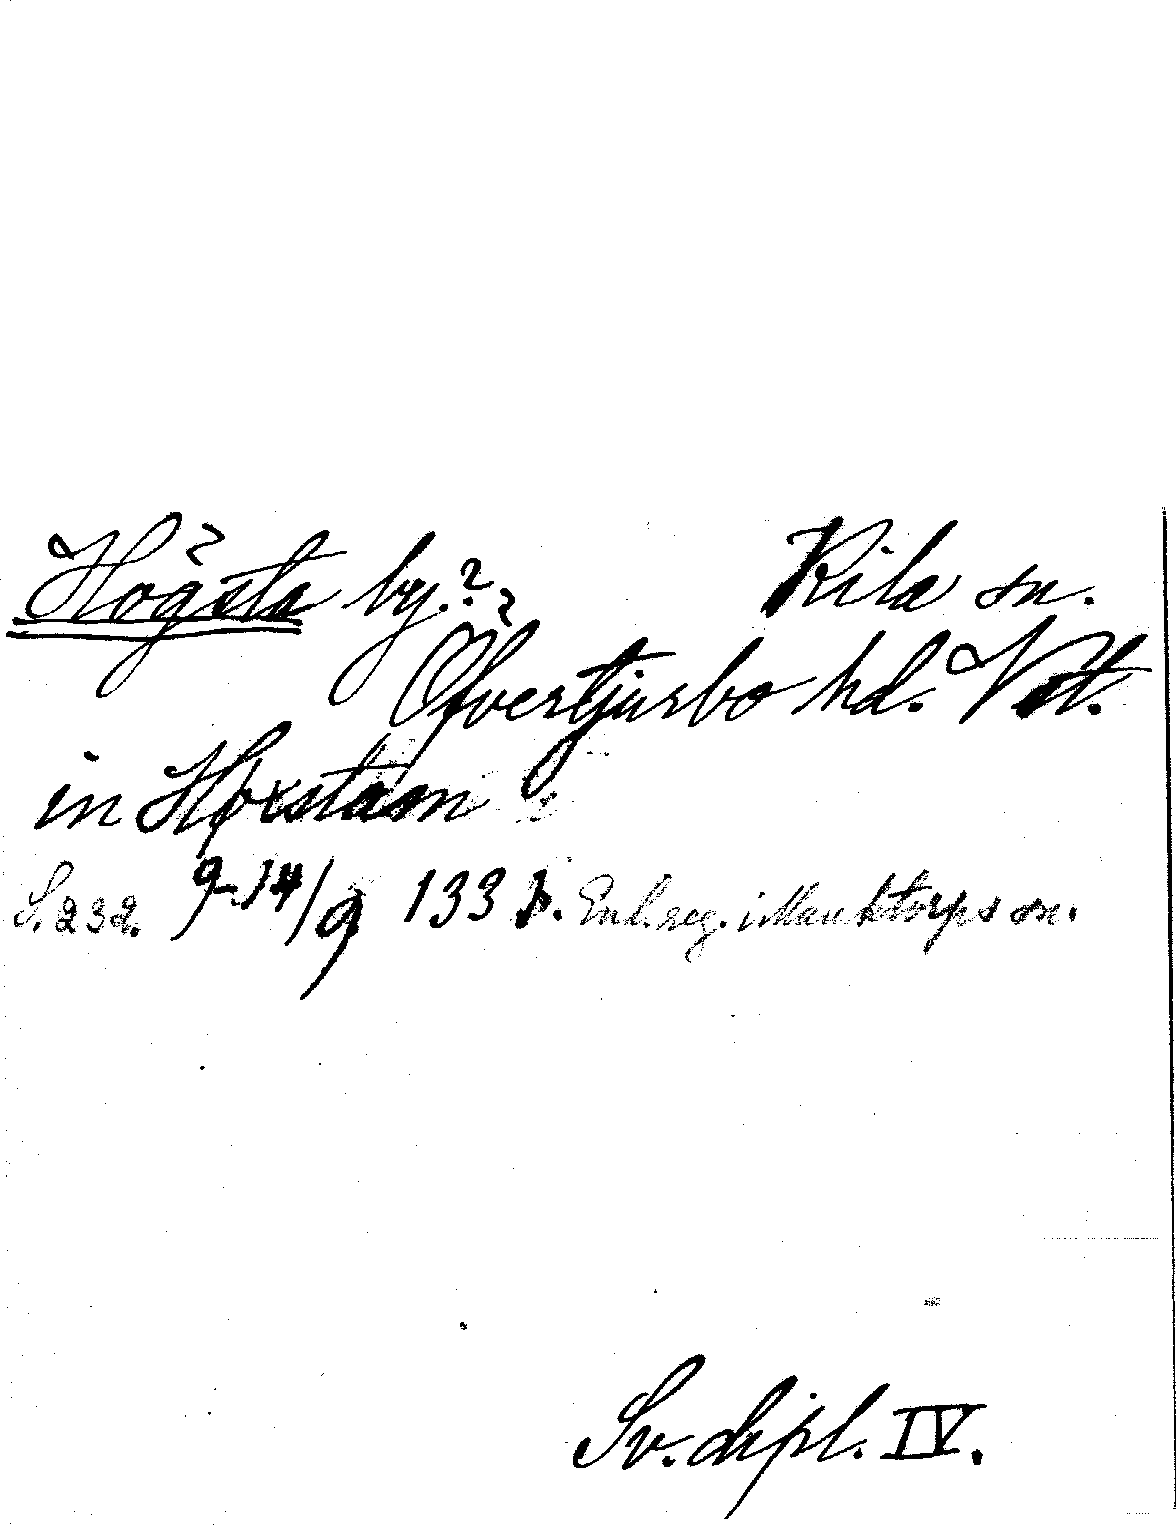 Högsta by.? Kila sn.
Öfvertjurbo hd. Vstm.
in Høxstam
S. 232. 9-14/9 1331. Enl. reg. i Munktorps sn.
Sv. dipl. IV.